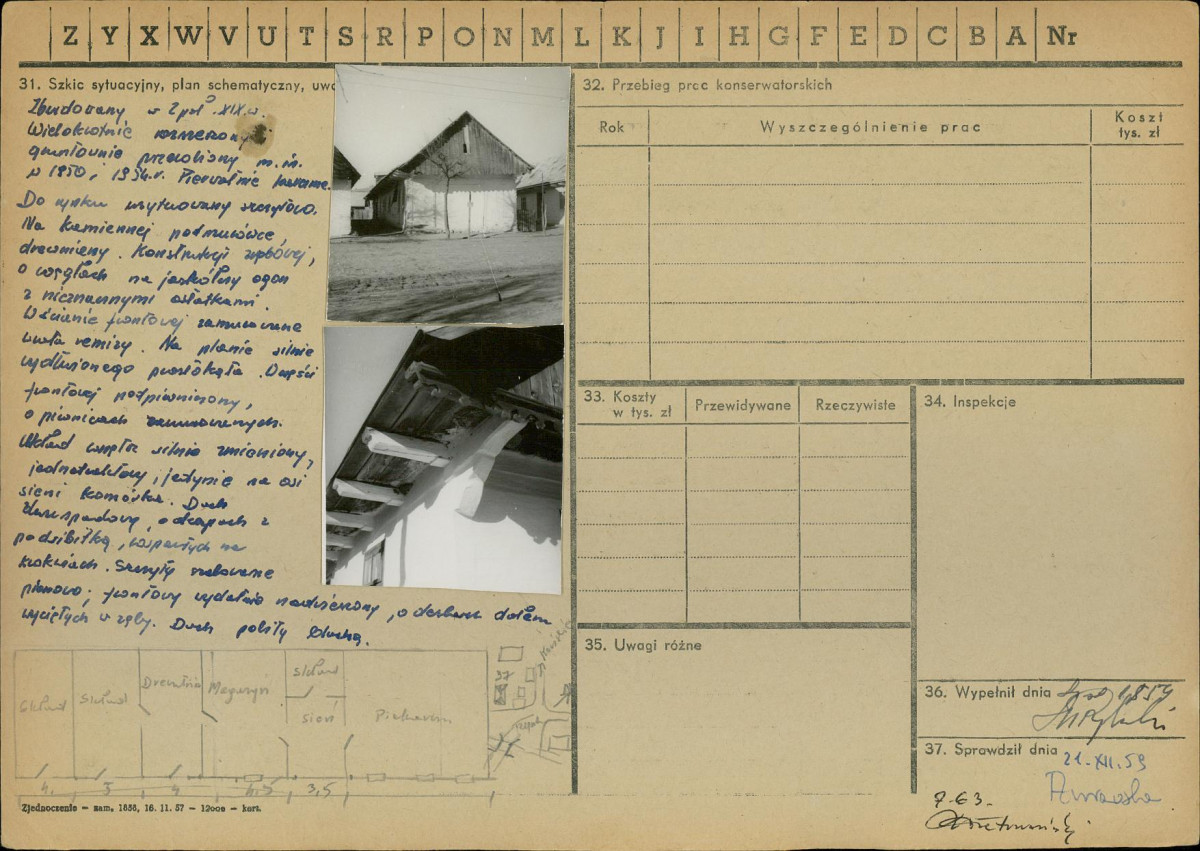 Z Y X W V U T S R P O N M L K J I H G F E D C B A Nr
31. Szkic sytuacyjny, plan schematyczny, uwa
Zbudowany w 2 poł. XIX w.
Wielokrotnie
gruntownie m.in.
w 1950 i 1954 r. Pierwotnie
Do rynku usytuowany szczytowo.
Na kamiennej podmurówce
drewniany. Konstrukcji zrębowej,
o węgłach na jaskółczy ogon
z nieznacznymi ostatkami.
W ścianie frontowej zamurowane
wrota remizy. Na planie silnie
wydłużonego prostokąta. W części
frontowej podpiwniczony,
o piwnicach zamurowanych.
Układ wnętrz silnie zmieniony,
jednotraktowy, jedynie na osi
sieni komórka. Dach
dwuspadowy, o okapach z
podsibitką, wspartych na
krokwiach. Szczyty szalowane
pionowo; frontowy wydatnie nadwieszony, o deskach dołem
wyciętych w zęby. Dach polity blachą.
Skład Skład Drewutnia Magazyn skład
sień Piekarnia
37
4. 5 4 4,5 3,5
Zjednoczenie — zam. 1838, 16. 11. 57 — 12000 — kart.
32. Przebieg prac konserwatorskich
Rok Wyszczególnienie prac Koszt tys. zł
33. Koszty w tys. zł Przewidywane Rzeczywiste
34. Inspekcje
35. Uwagi różne
36. Wypełnił dnia 1959
37. Sprawdził dnia
21.XII.59
7.63.